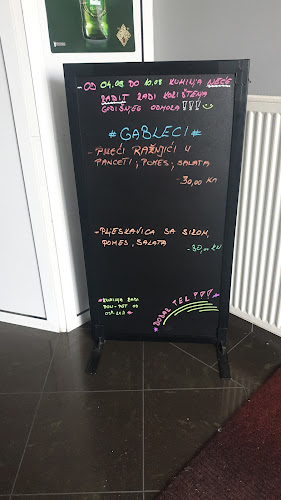 - OD 04.08 DO 10.08 KUHINJA NEĆE
RADIT RADI KORIŠTENA
GODIŠNJEG ODMORA!!!
# GABLECI #
- PILEĆI RAŽNJIĆI U
PANCETI, POMES, SALATA
- 30,00 KN
- PLJESKAVICA SA SIROM,
POMES, SALATA
- 30,00 KN
KUHINJA RADI
PON - PET OD
DOBAR TEK !!!